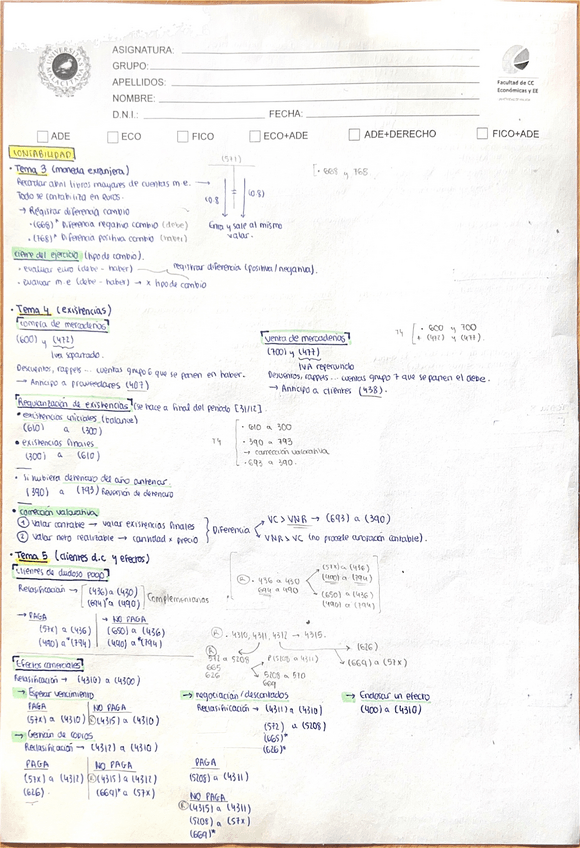 UNIVERSITAS MALACITANA
ASIGNATURA:
GRUPO:
APELLIDOS:
NOMBRE:
D.N.I.: FECHA:
Facultad de CC
Económicas y EE
ADE ECO FICO ECO+ADE ADE+DERECHO FICO+ADE
CONTABILIDAD
• Tema 3 (moneda extranjera)
Recordar abrir libros mayores de cuentas m.e. →
Todo se contabiliza en euros.
→ Registrar diferencia cambio
- (668)* Diferencia negativa cambio (debe)
• (768)* Diferencia positiva cambio (haber)
(571)
10.8 = 10.8)
Entra y sale al mismo
valor.
[· 668 y 768
Cierre del ejercicio (tipo de cambio).
• evaluar euro (debe - haber) registrar diferencia (positiva/negativa).
• evaluar m.e (debe - haber) → x tipo de cambio
• Tema 4 (existencias)
Compra de mercaderías
(600) y (472)
IVA soportado
Descuentos, rappels ... cuentas grupo 6 que se ponen en haber.
→ Anticipo a proveedores (407)
Venta de mercaderías
(700) y (477)
IVA repercutido
Descuentos, rappels ... cuentas grupo 7 que se ponen el debe.
→ Anticipo a clientes (438).
T4 [ · 600 y 700
+ (472) y (477).
Regularización de existencias (se hace a final del periodo [31/12].
• existencias iniciales (balance)
(610) a (300)
• existencias finales
(300) a (610)
T4 · 610 a 300
· 390 a 793
→ corrección valorativa
· 693 a 390.
• Si hubiera deterioro del año anterior.
(390) a (793) Reversión de deterioro
• corrección valorativa
① Valor contable → valor existencias finales
② Valor neto realizable → cantidad x precio
Diferencia
VC > VNR → (693) a (390)
VNR > VC (no procede anotación contable).
• Tema 5 (clientes d.c y efectos)
Clientes de dudoso pago
Reclasificación → (436) a (430)
(694)* a (490)
Complementarios
→ PAGA
(57x) a (436)
(490) a* (794)
NO PAGA
(650) a (436)
(490) a* (794)
R. · 436 a 430
694 a 490
(57x) a (436)
(490) a (794)
(650) a (436)
(490) a (794)
R. · 4310, 4311, 4312 → 4315.
R
572 a 5208
665
626
P(5208 a 4311)
5208 a 570
669
(626)
(669) a (57x)
Efectos comerciales
Reclasificación → (4310) a (4300)
→ Esperar vencimiento
PAGA
(57x) a (4310)
NO PAGA
R (4315) a (4310)
→ Gestión de cobros
Reclasificación → (4312) a (4310)
PAGA
(57x) a (4312)
(626).
NO PAGA
R (4315) a (4312)
(669)* a (57x)
→ negociación / descontados
Reclasificación → (4311) a (4310)
(572) a (5208)
(665)*
(626)*
PAGA
(5208) a (4311)
NO PAGA
R (4315) a (4311)
(5208) a (57x)
(669)*
→ Endosar un efecto
(400) a (4310)